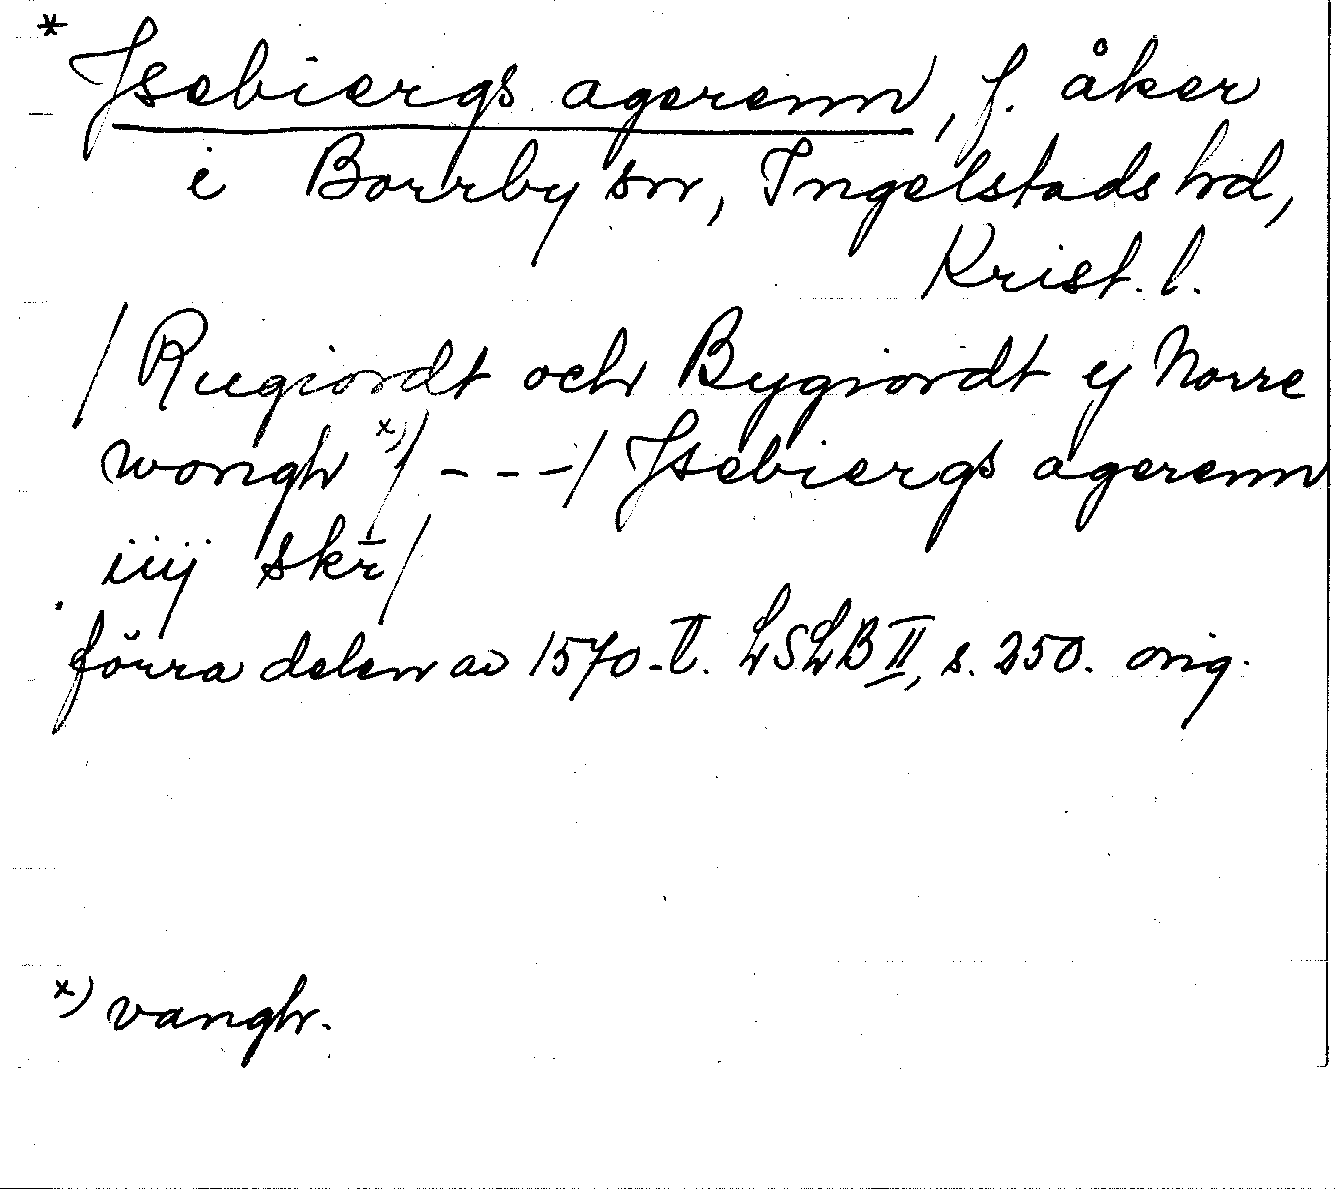 * Jsebiergs agerenn, f. åker
i Borrby sn, Ingelstads hd,
Krist. l.
/Rugiordt och Bygiordt y Norre
wongh x)/ - - -/ Jsebiergs agerenn
iiij skr̄/
förra delen av 1570-t. LSLB II, s. 250. orig.
x) vangh.